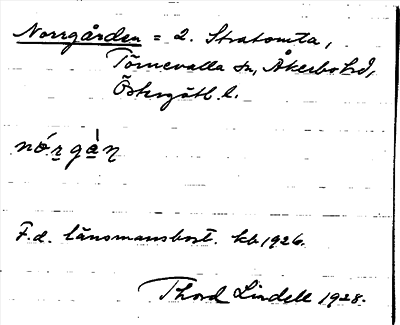 Norrgården = 2. Stratomta,
Törnevalla sn, Åkerbo hd,
Östergötl. l.
nó.r̲gà̲n̥
F.d. länsmansbost. kb 1926.
Thord Lindell 1928.